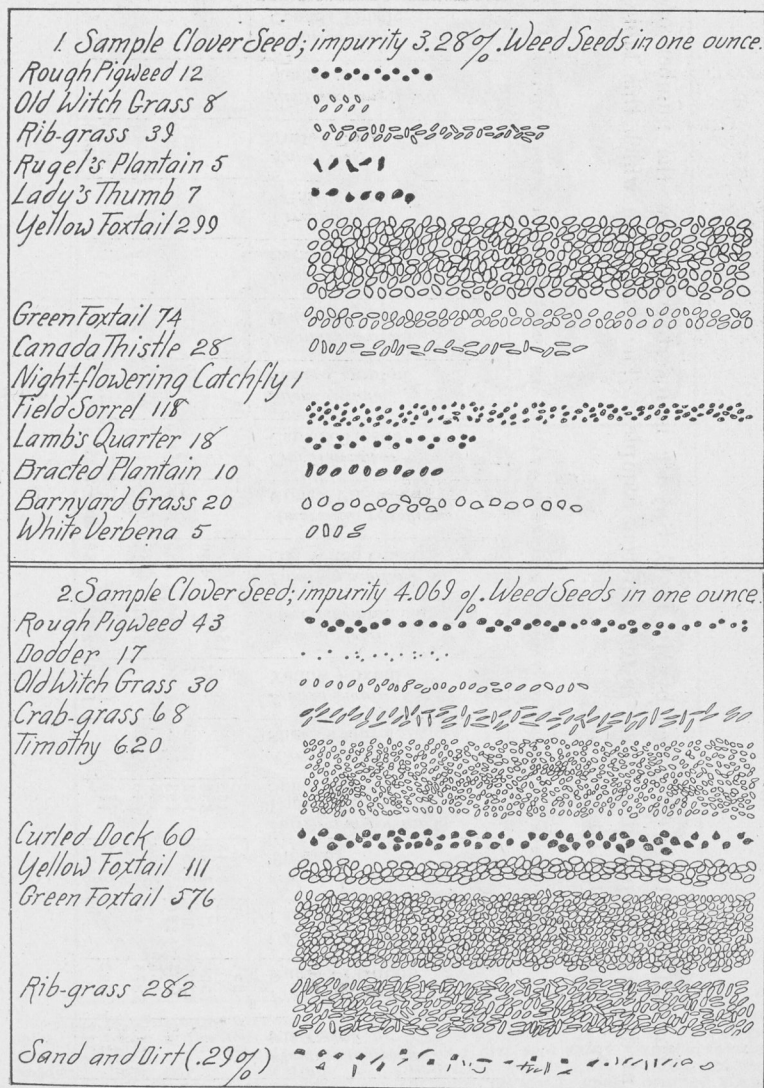 1. Sample Clover Seed; impurity 3.28%. Weed Seeds in one ounce.
Rough Pigweed 12
Old Witch Grass 8
Rib-grass 39
Rugel's Plantain 5
Lady's Thumb 7
Yellow Foxtail 299
Green Foxtail 74
Canada Thistle 28
Night-flowering Catchfly 1
Field Sorrel 118
Lamb's Quarter 18
Bracted Plantain 10
Barnyard Grass 20
White Verbena 5
2. Sample Clover Seed; impurity 4.069 %. Weed Seeds in one ounce.
Rough Pigweed 43
Dodder 17
Old Witch Grass 30
Crab-grass 68
Timothy 620
Curled Dock 60
Yellow Foxtail 111
Green Foxtail 576
Rib-grass 282
Sand and Dirt (.29%)